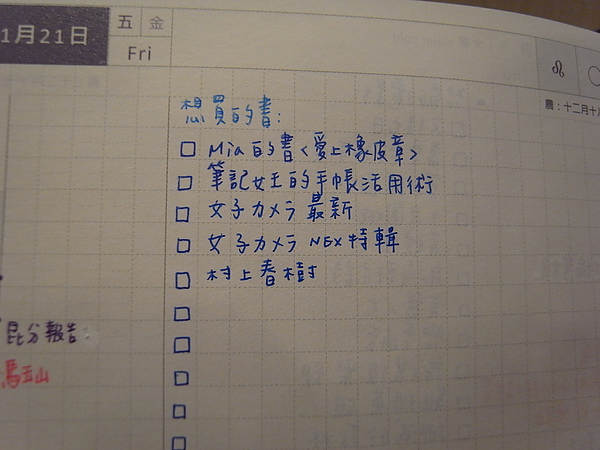 1月21日
五 金
Fri
♌
農:十二月十
想買的書:
Mia的書<愛上橡皮章>
筆記女王的手帳活用術
女子カメラ 最新
女子カメラ NEX特輯
村上春樹
昆分報告:
馬玉山